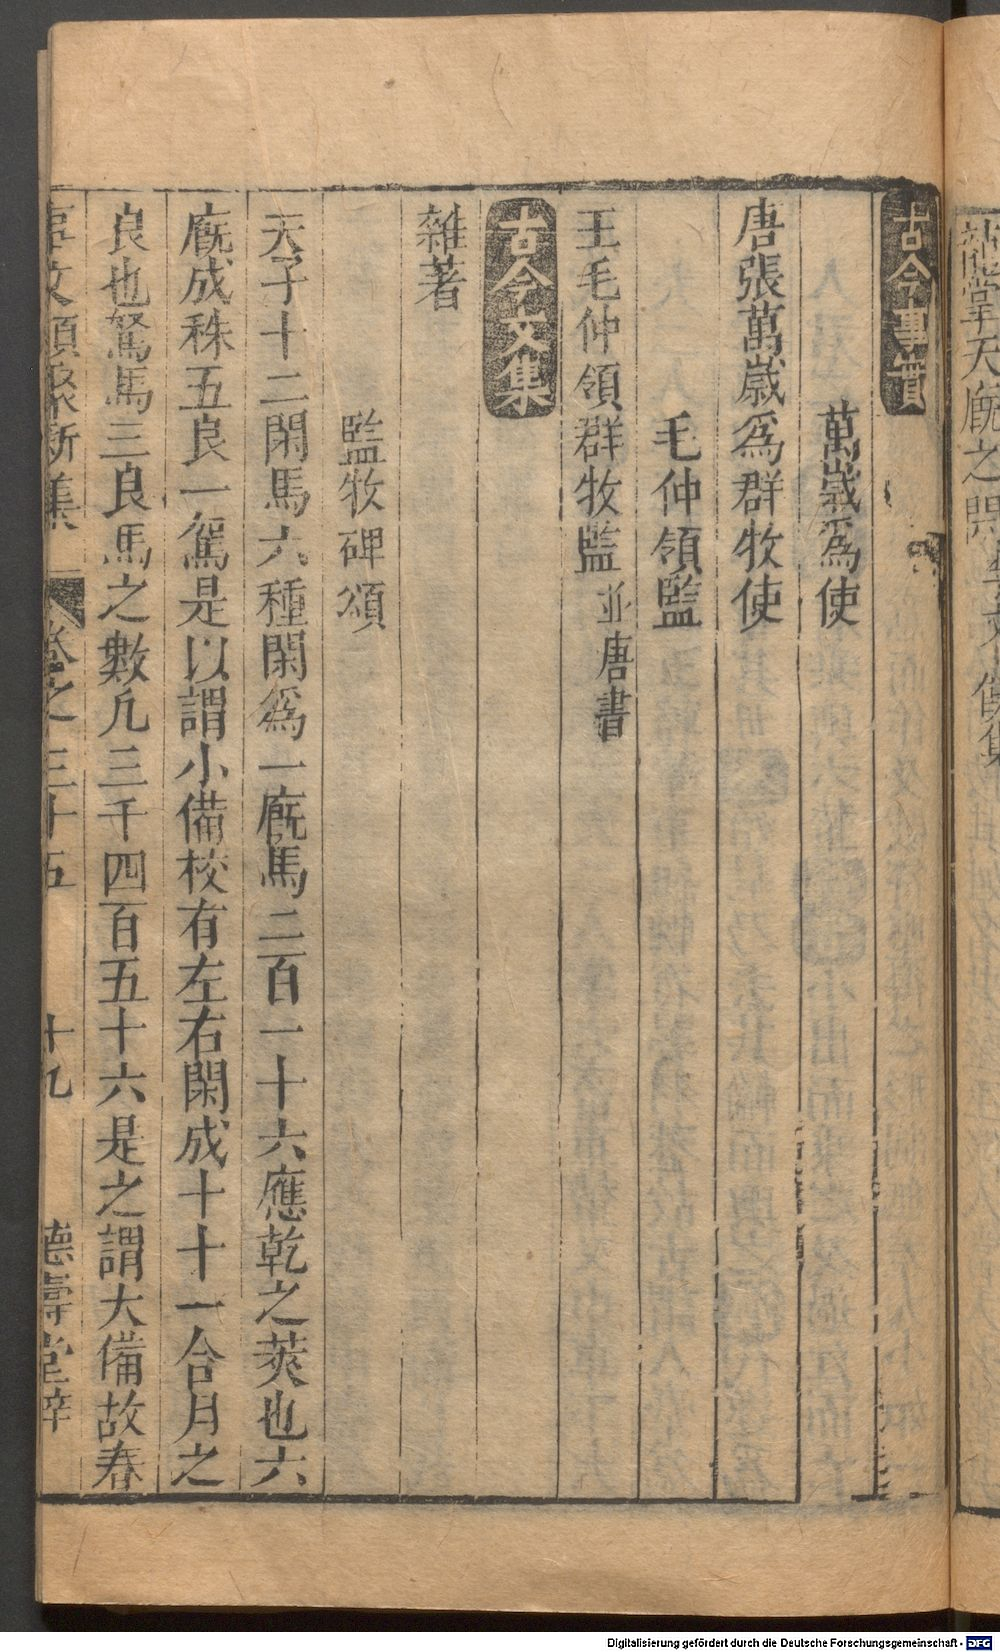 古今事實
萬歲爲使
唐張萬歲爲群牧使
毛仲領監
王毛仲領群牧監並唐書
古今文集
雜著
監牧碑頌
天子十二閑馬六種閑爲一廐馬二百一十六應乾之策也六
廐成秼五良一駑是以謂小備校有左右閑成十十一合月之
良也駑馬三良馬之數凢三千四百五十六是之謂大備故春
事文類聚新集 卷之三十五 十九 德壽堂梓
Digitalisierung gefördert durch die Deutsche Forschungsgemeinschaft - DFG